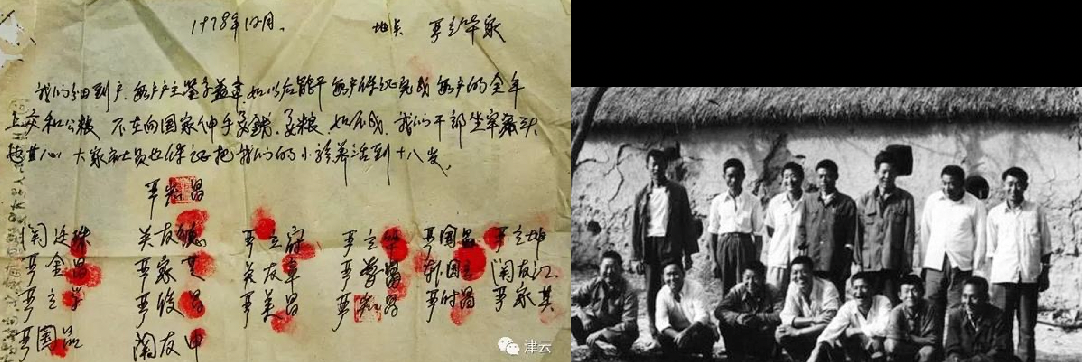 1978年12月. 地点 严立华家
我们分田到户,每户户主签字盖章,如以后能干,每户保证完成每户的全年
上交和公粮. 不在向国家伸手要钱要粮. 如不成,我们干部坐牢杀头
也甘心,大家社员也保证把我们的小孩养活到十八岁.
严宏昌
关廷珠 关友德 严立富 严立华 严国昌 严立坤
严金昌 严家芝 关友章 严学昌 韩国云 关友江
严立学 严俊昌 严美昌 严宏昌 严付昌 严家其
严国品 关友申
津云